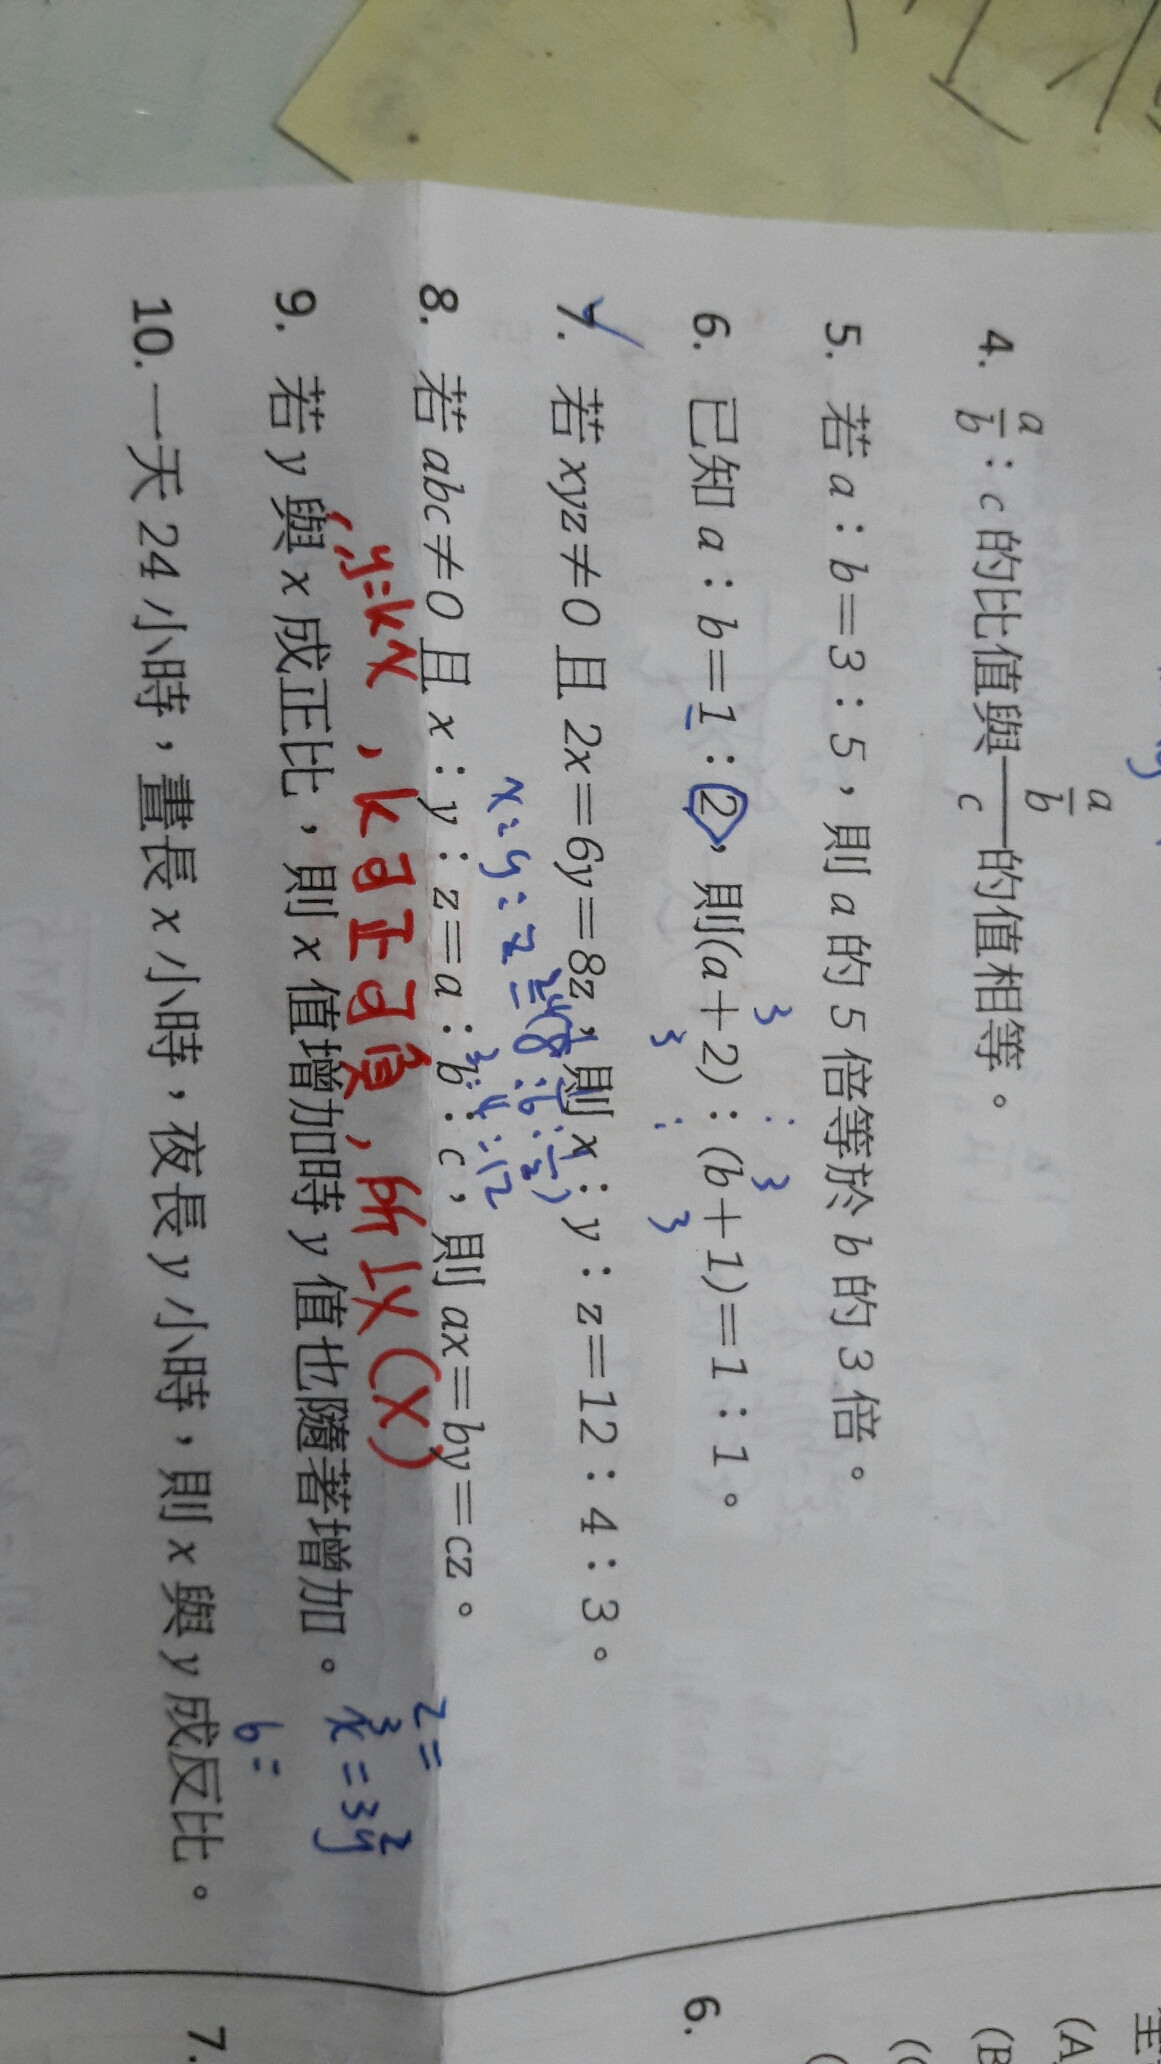 4. a/b : c 的比值與 (a/b)/c 的值相等。
5. 若 a : b=3 : 5，則 a 的 5 倍等於 b 的 3 倍。
3 : 3
6. 已知 a : b=1 : 2，則(a+2) : (b+1)=1 : 1。
3 : 3
7. 若 xyz≠0 且 2x=6y=8z，則 x : y : z=12 : 4 : 3。
x : y : z =
3 : 4 : 12
8. 若 abc≠0 且 x : y : z=a : b : c，則 ax=by=cz。
y=kx，k可正可負，所以(X)
9. 若 y 與 x 成正比，則 x 值增加時 y 值也隨著增加。
2=
3
x=3y
2
6=
10. 一天 24 小時，晝長 x 小時，夜長 y 小時，則 x 與 y 成反比。
(A
(B
6.
7.